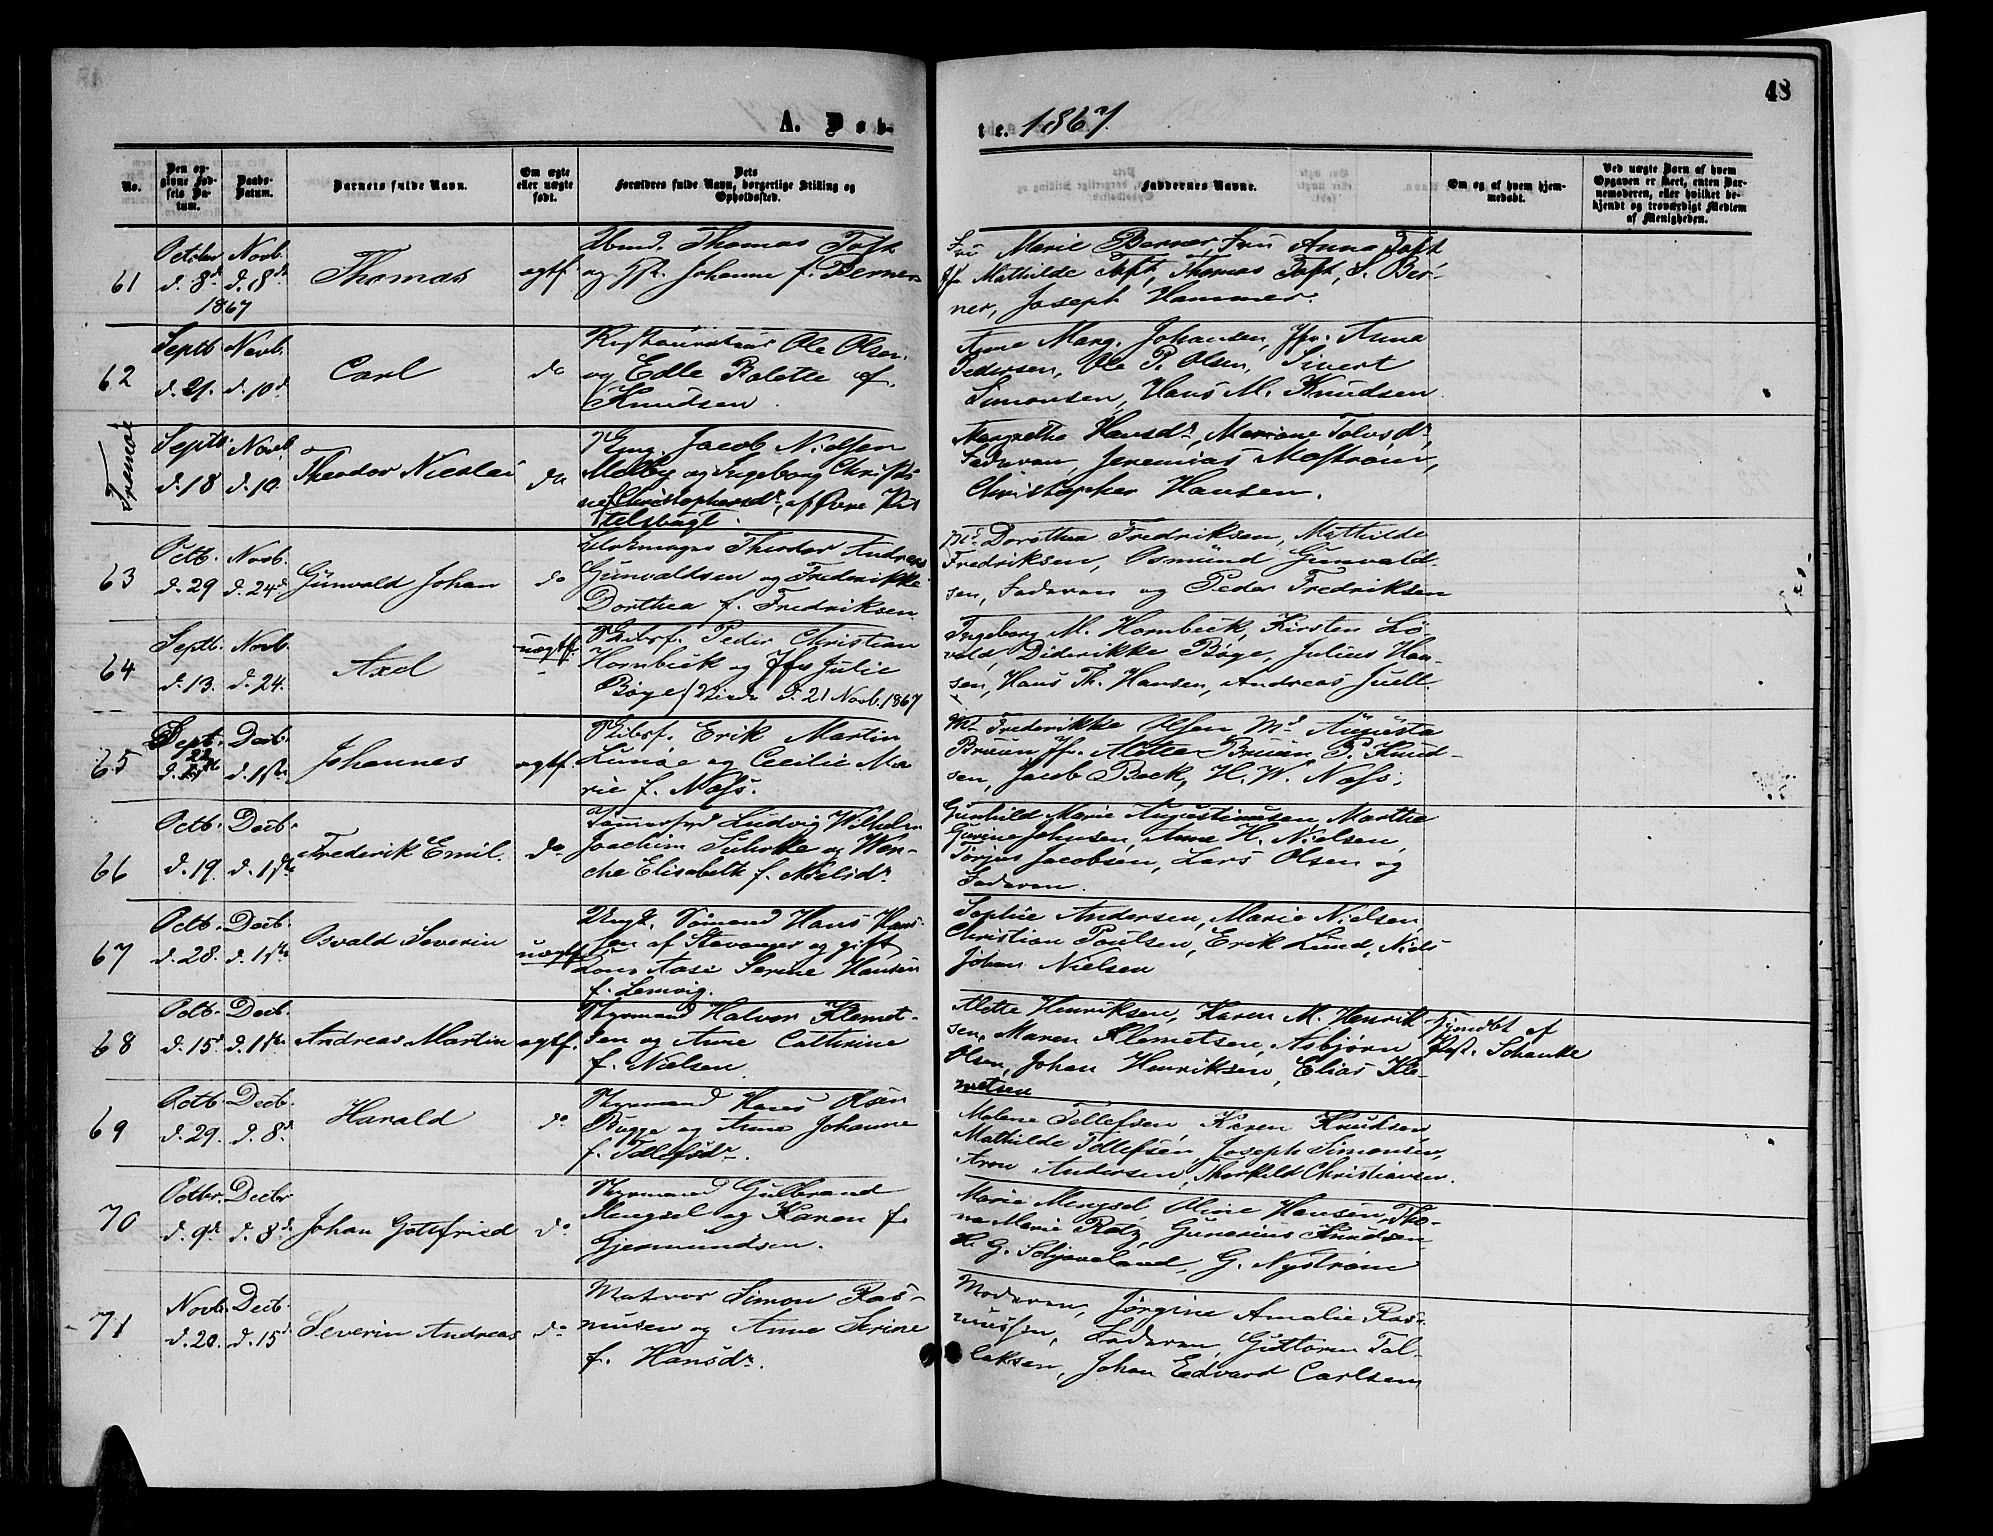 48
A. Døb-
te. 1867
No.
Den op-
givne Fød-
sels Da-
tum.
Daabs-
Datum.
Barnets fulde Navn.
Om ægte
eller uægte
født.
Dets
Forældres fulde Navn, borgerlige Stilling og
Opholdssted.
Faddernes Navne.
Om og af hvem hjem-
medøbt.
Ved uægte Børn af hvem
Opgaven er skeet, enten Bar-
nemoderen, eller hvilket be-
kjendt og troværdigt Medlem
af Menigheden.
61
October
d. 8d
1867
Novb.
d. 18d
Thomas
ægtf.
Thomas Toft
og Johanne f. Berner
Fru Marie Berner, Fru Anna Toft
Mathilde Toft, Thomas Toft, S. Ber-
ner, Joseph Hammer.
62
Septb.
d. 21.
Novb.
d. 10d
Carl
do
Restaurateur Ole Olsen
og Edle Bolette f.
Knudsen
Anne Marg. Johansen, Jfr. Anna
Pedersen, Ole P. Olsen, Sivert
Simonsen, Hans M. Knudsen
Septb.
d. 18
Novb.
d. 10
Theodor Nicolai
do
Jacob Nielsen
Melby og Ingeborg Christi
ne Christophersdr, af Øvre
Margrethe Hansdr, Mariane Tolvsdr,
Faderen, Jeremias Mostrøm,
Christopher Hansen.
63
Octb.
d. 29
Novb.
d. 24d
Gunvald Johan
do
Theodor Andreas
Gunvaldsen og Frederikke
Dorthea f. Fredriksen
Dorothea Fredriksen, Mathilde
Fredriksen, Osmund Gunvald-
sen, Faderen og Peder Fredriksen
64
Septb.
d. 13.
Novb.
d. 24.
Axel
uægtf.
Skibsf. Peder Christian
Hornbeck og Jfr Julie
Bøge d. 21 Novb. 1867
Ingeborg M. Hornbeck, Kirsten Lø-
vold, Diderikke Bøge, Julius Han-
sen, Hans Th. Hansen, Andreas Juell.
65
Sept.
d. 22
Decb.
d. 1ste
Johannes
ægtf.
Skibsf. Erik Martin
Lunøe og Cecilie Ma
rie f. Næss.
Md Frederikke Olsen, Md Augusta
Bruun, Jfr. Alette Bruun, P. Knud-
sen, Jacob Beck, H. W. Næss.
66
Octb.
d. 19.
Decb.
d. 1ste
Frederik Emil.
do
Ludvig Wilhelm
Joachim og Wen-
che Elisabeth f. Nielsdr.
Gunhild Marie Augustinusen, Marthe
Gurine Johnsen, Anne H. Nielsen,
Torjus Jacobsen, Lars Olsen og
Faderen.
67
Octb.
d. 28.
Decb.
d. 1ste
Osvald Severin
uægtf.
Ungk. Sømand Hans Han-
sen af Stavanger og gift
Kone Aase Serine Hansen
f. Lemvig.
Sophie Andersen, Marie Nielsen,
Christian Poulsen, Erik Lund, Niels
Johan Nielsen
68
Octb.
d. 15d
Decb.
d. 1ste
Andreas Martin
ægtf.
Styrmand Halvor Klemet-
sen og Anne Cathrine
f. Nielsen.
Alette Henriksen, Karen M. Henrik
sen, Maren Klemetsen, Asbjørn
Olsen, Johan Henriksen, Elias Kle-
metsen
Hjemdbt af
Schanke
69
Octb.
d. 29.
Decb.
d. 8d
Harald
do
Styrmand Hans Olsen
Bugge og Anne Johanne
f. Tellefsdr.
Malene Tellefsen, Karen Knudsen,
Mathilde Tellefsen, Joseph Simonsen,
Aron Andersen, Thorkild Christiansen.
70
Octbr.
d. 9d
Decbr
d. 8d
Johan Gottfried
do
Styrmand Gulbrand
Mengsel og Karen f.
Gjermundsen.
Marie Mengsel, Oline Hansen, Tho-
ne Marie Rotz, Gunerius Knudsen
H. G. Schjøveland, G. Nystrøm
71
Novb.
d. 20.
Decb.
d. 15d
Severin Andreas
do
Matros Simon Ras-
musen og Anne Serine
f. Hansdr.
Moderen, Jørgine Amalie Ras-
mussen, Faderen, Guttorm Tal-
laksen, Johan Edvard Carlsen